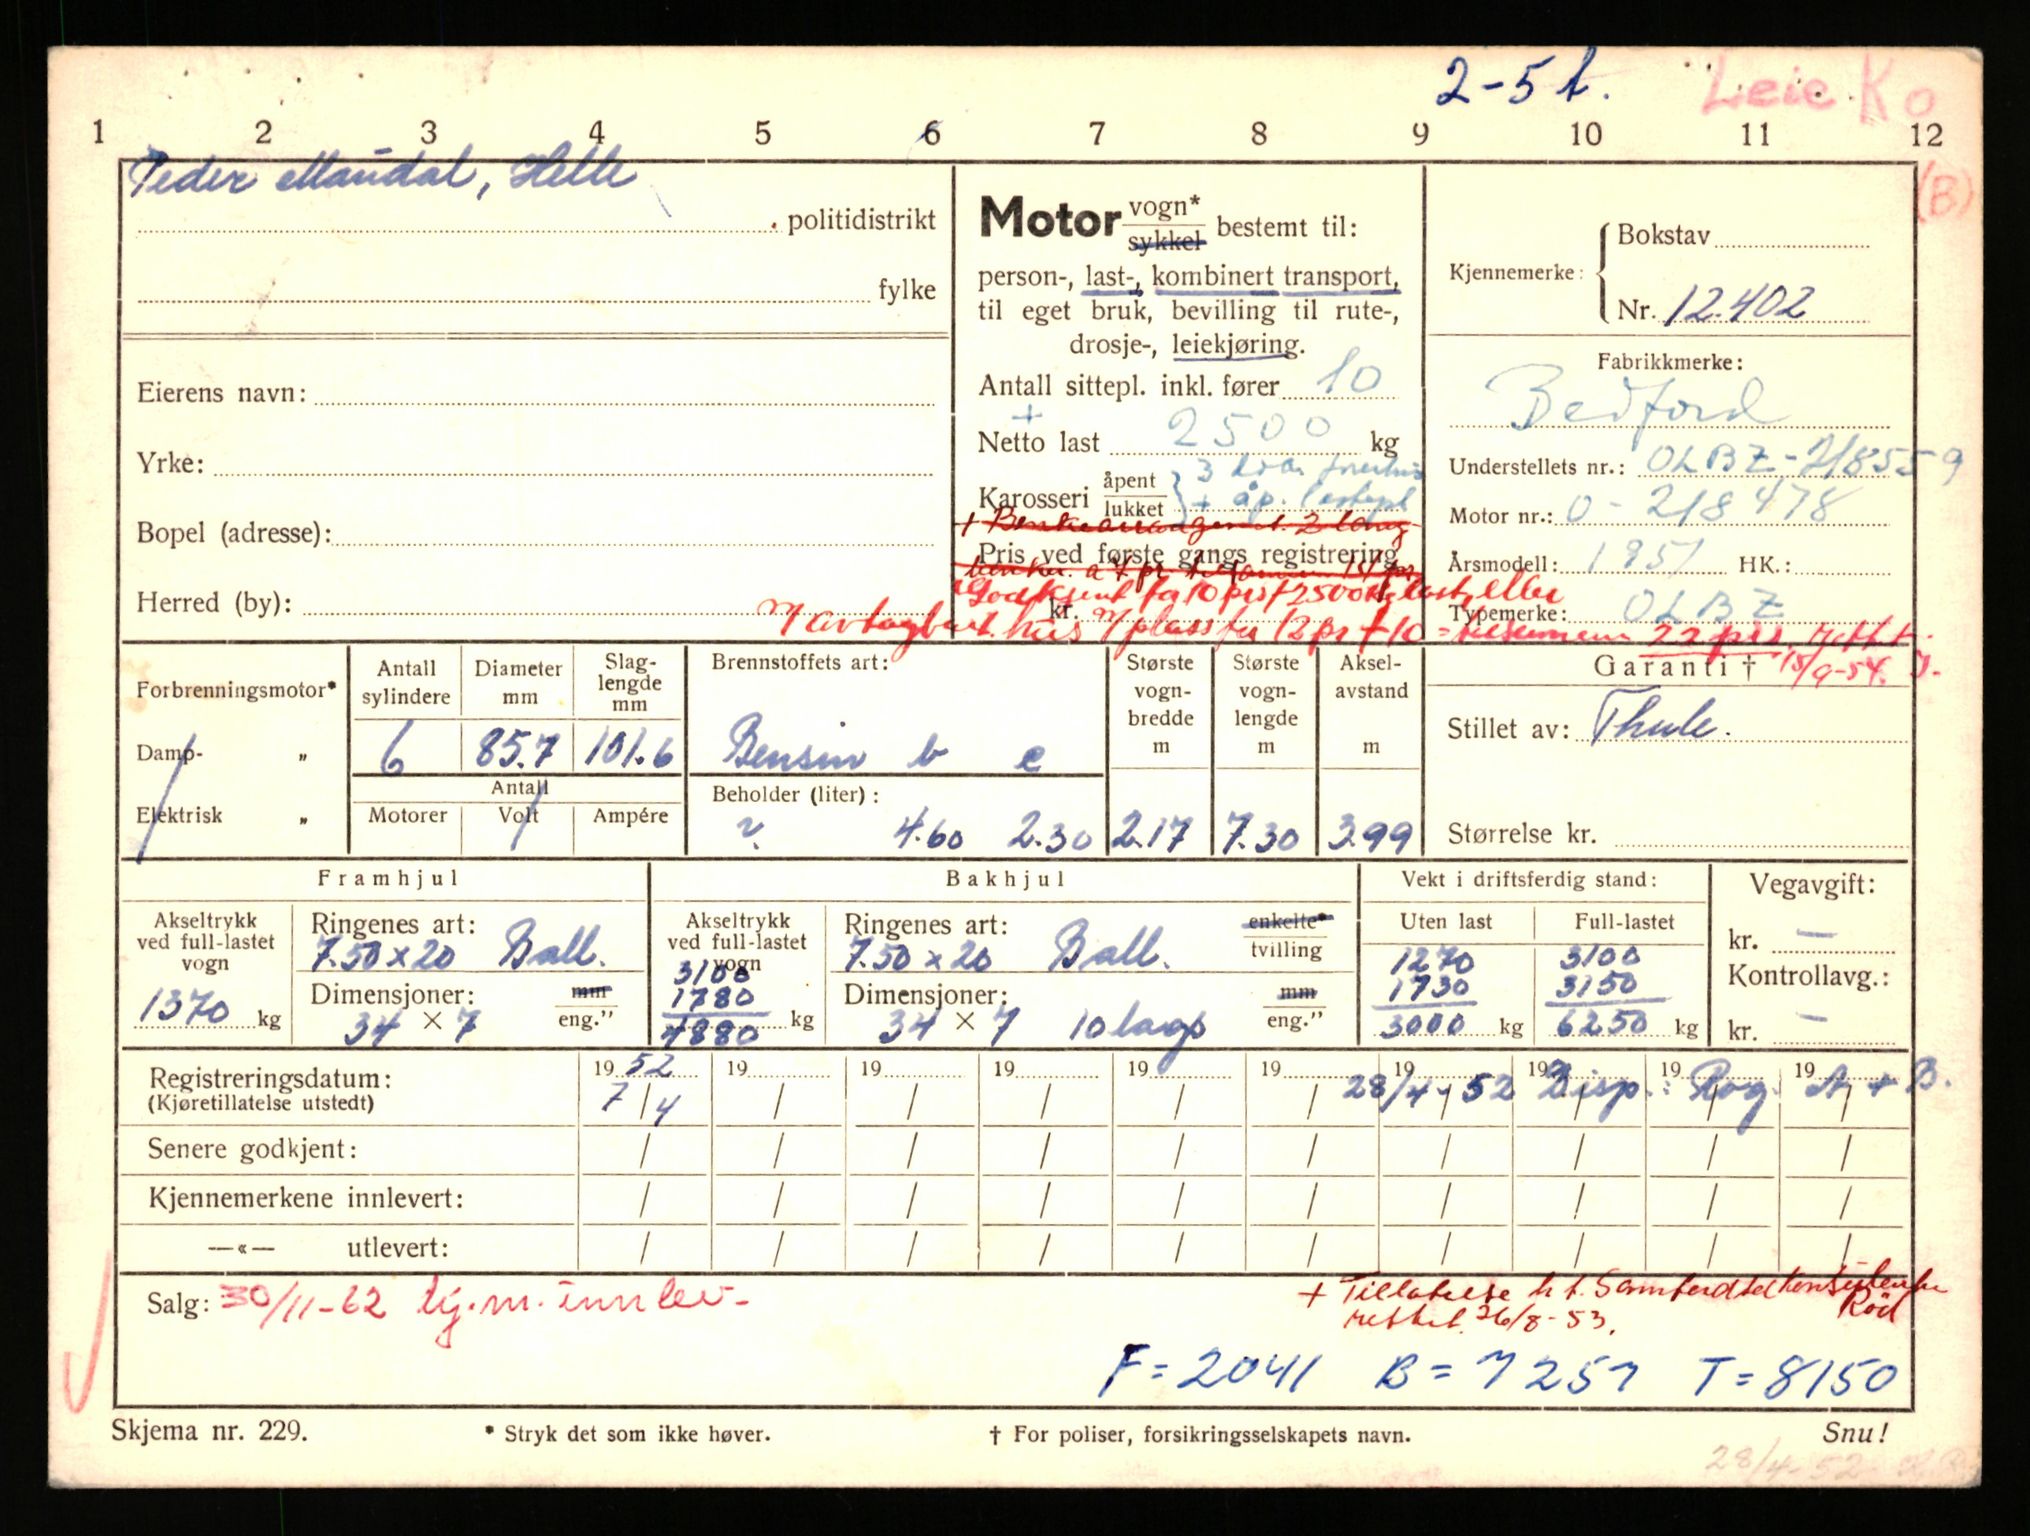 2-5 t. Leie K o
1 2 3 4 5 6 7 8 9 10 11 12
Peder Maudal, Helle
(B)
politidistrikt
fylke
Eierens navn:
Yrke:
Bopel (adresse):
Herred (by):
Motor vogn* sykkel bestemt til:
person-, last-, kombinert transport,
til eget bruk, bevilling til rute-,
drosje-, leiekjøring.
Antall sittepl. inkl. fører 10
+
Netto last 2500 kg
Karosseri åpent lukket } 3 førerhus
+ åp. lastepl
+ Benkearrangement. 2 lang
Pris ved første gangs registrering
benker a 7 pr. tilsammen
Godkjent for 10 prs + 2500 kg last, eller
kr.
m avtagbart hus m/plass for 12 prs + 10 = tilsammen 22 prs
15/9-54.
Kjennemerke: { Bokstav
Nr. 12.402
Fabrikkmerke:
Bedford
Understellets nr.: OLBZ-218559
Motor nr.: O-218478
Årsmodell: 1951 HK.:
Typemerke: OLBZ
Garanti †
Stillet av: Thule.
Størrelse kr.
Forbrenningsmotor*
Damp- „
Elektrisk „
Antall sylindere 6
Diameter mm 85.7
Slag-lengde mm 101.6
Antall
Motorer Volt Ampére
Brennstoffets art:
Bensin b e
Beholder (liter):
4.60 2.30
Største vogn-bredde m 2.17
Største vogn-lengde m 7.30
Aksel-avstand m 3.99
Framhjul
Akseltrykk ved full-lastet vogn
1370 kg
Ringenes art:
7.50x20 Ball.
Dimensjoner: mm eng."
34 × 7
Bakhjul
Akseltrykk ved full-lastet vogn
3100
1780
4880 kg
Ringenes art: enkelte* tvilling
7.50 x 20 Ball.
Dimensjoner: mm eng."
34 × 7 10 lags
Vekt i driftsferdig stand:
Uten last Full-lastet
1270 3100
1730 3150
3000 kg 6250 kg
Vegavgift:
kr. —
Kontrollavg.:
kr. —
Registreringsdatum:
(Kjøretillatelse utstedt)
19 52 19 19 19 19 19 19 19 19 19
7/4 / / / / / 28/4-52 Disp.: Rog. A + B.
Senere godkjent: / / / / / / / / / /
Kjennemerkene innlevert: / / / / / / / / / /
—«— utlevert: / / / / / / / / / /
Salg: 30/11-62 kj.m. innlev-
+ Tillatelse
26/8-53.
F=2041 B=7257 T=8150
Skjema nr. 229.
* Stryk det som ikke høver.
† For poliser, forsikringsselskapets navn.
Snu!
28/4-52